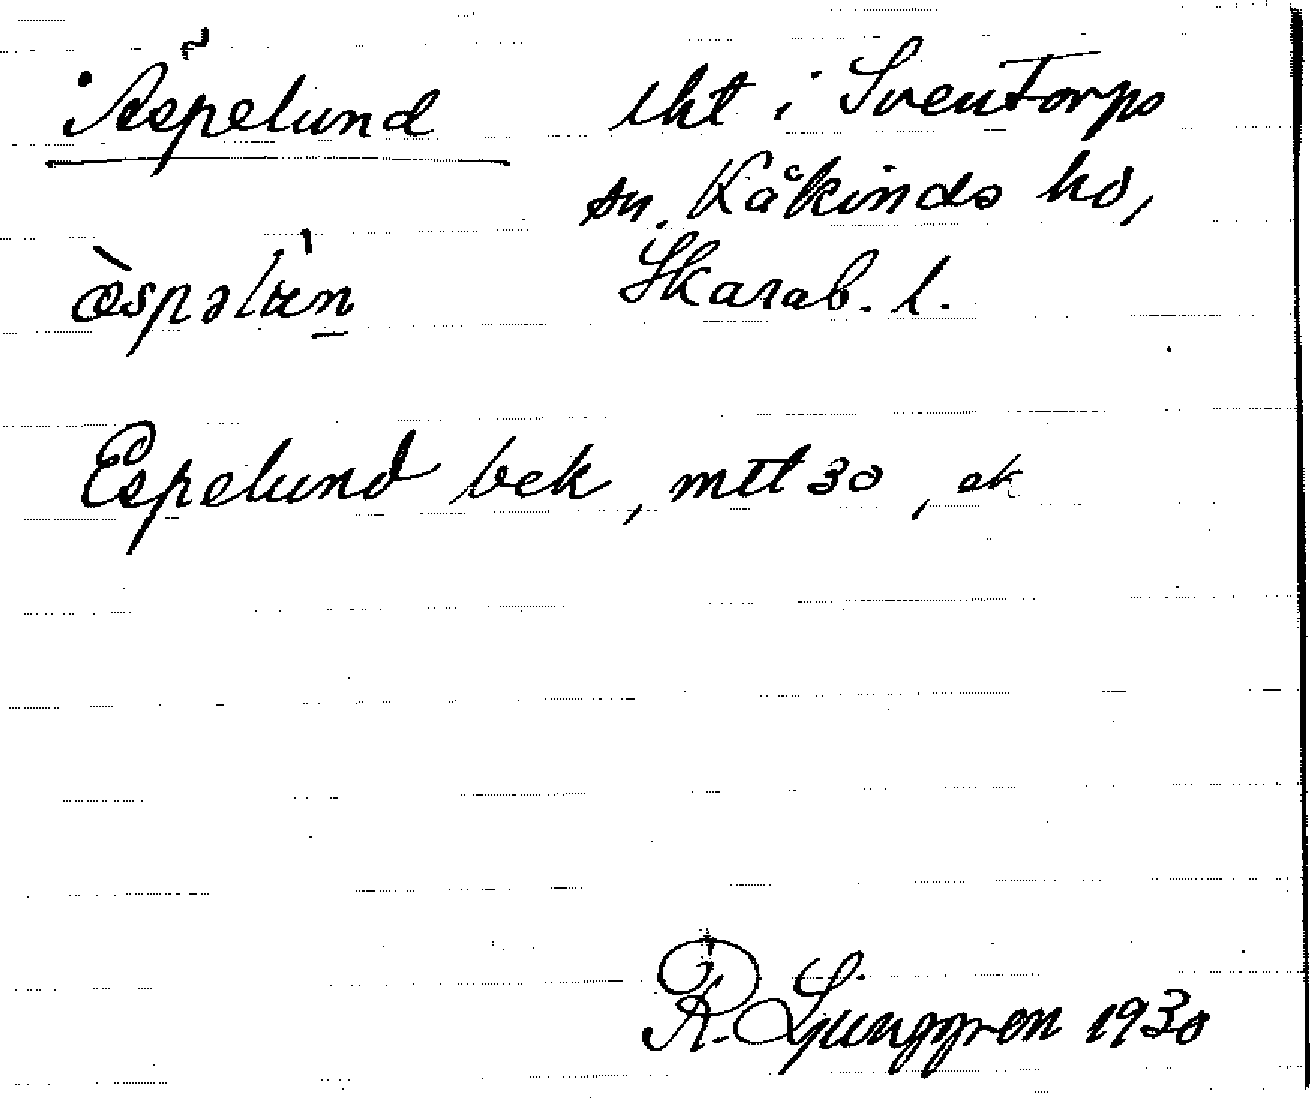 Äspelund lht i Sventorps
sn. Kåkinds hd,
Skarab. l.
æ̀spəluń
Espelund bek, mtl 30, ek
R. Ljunggren 1930